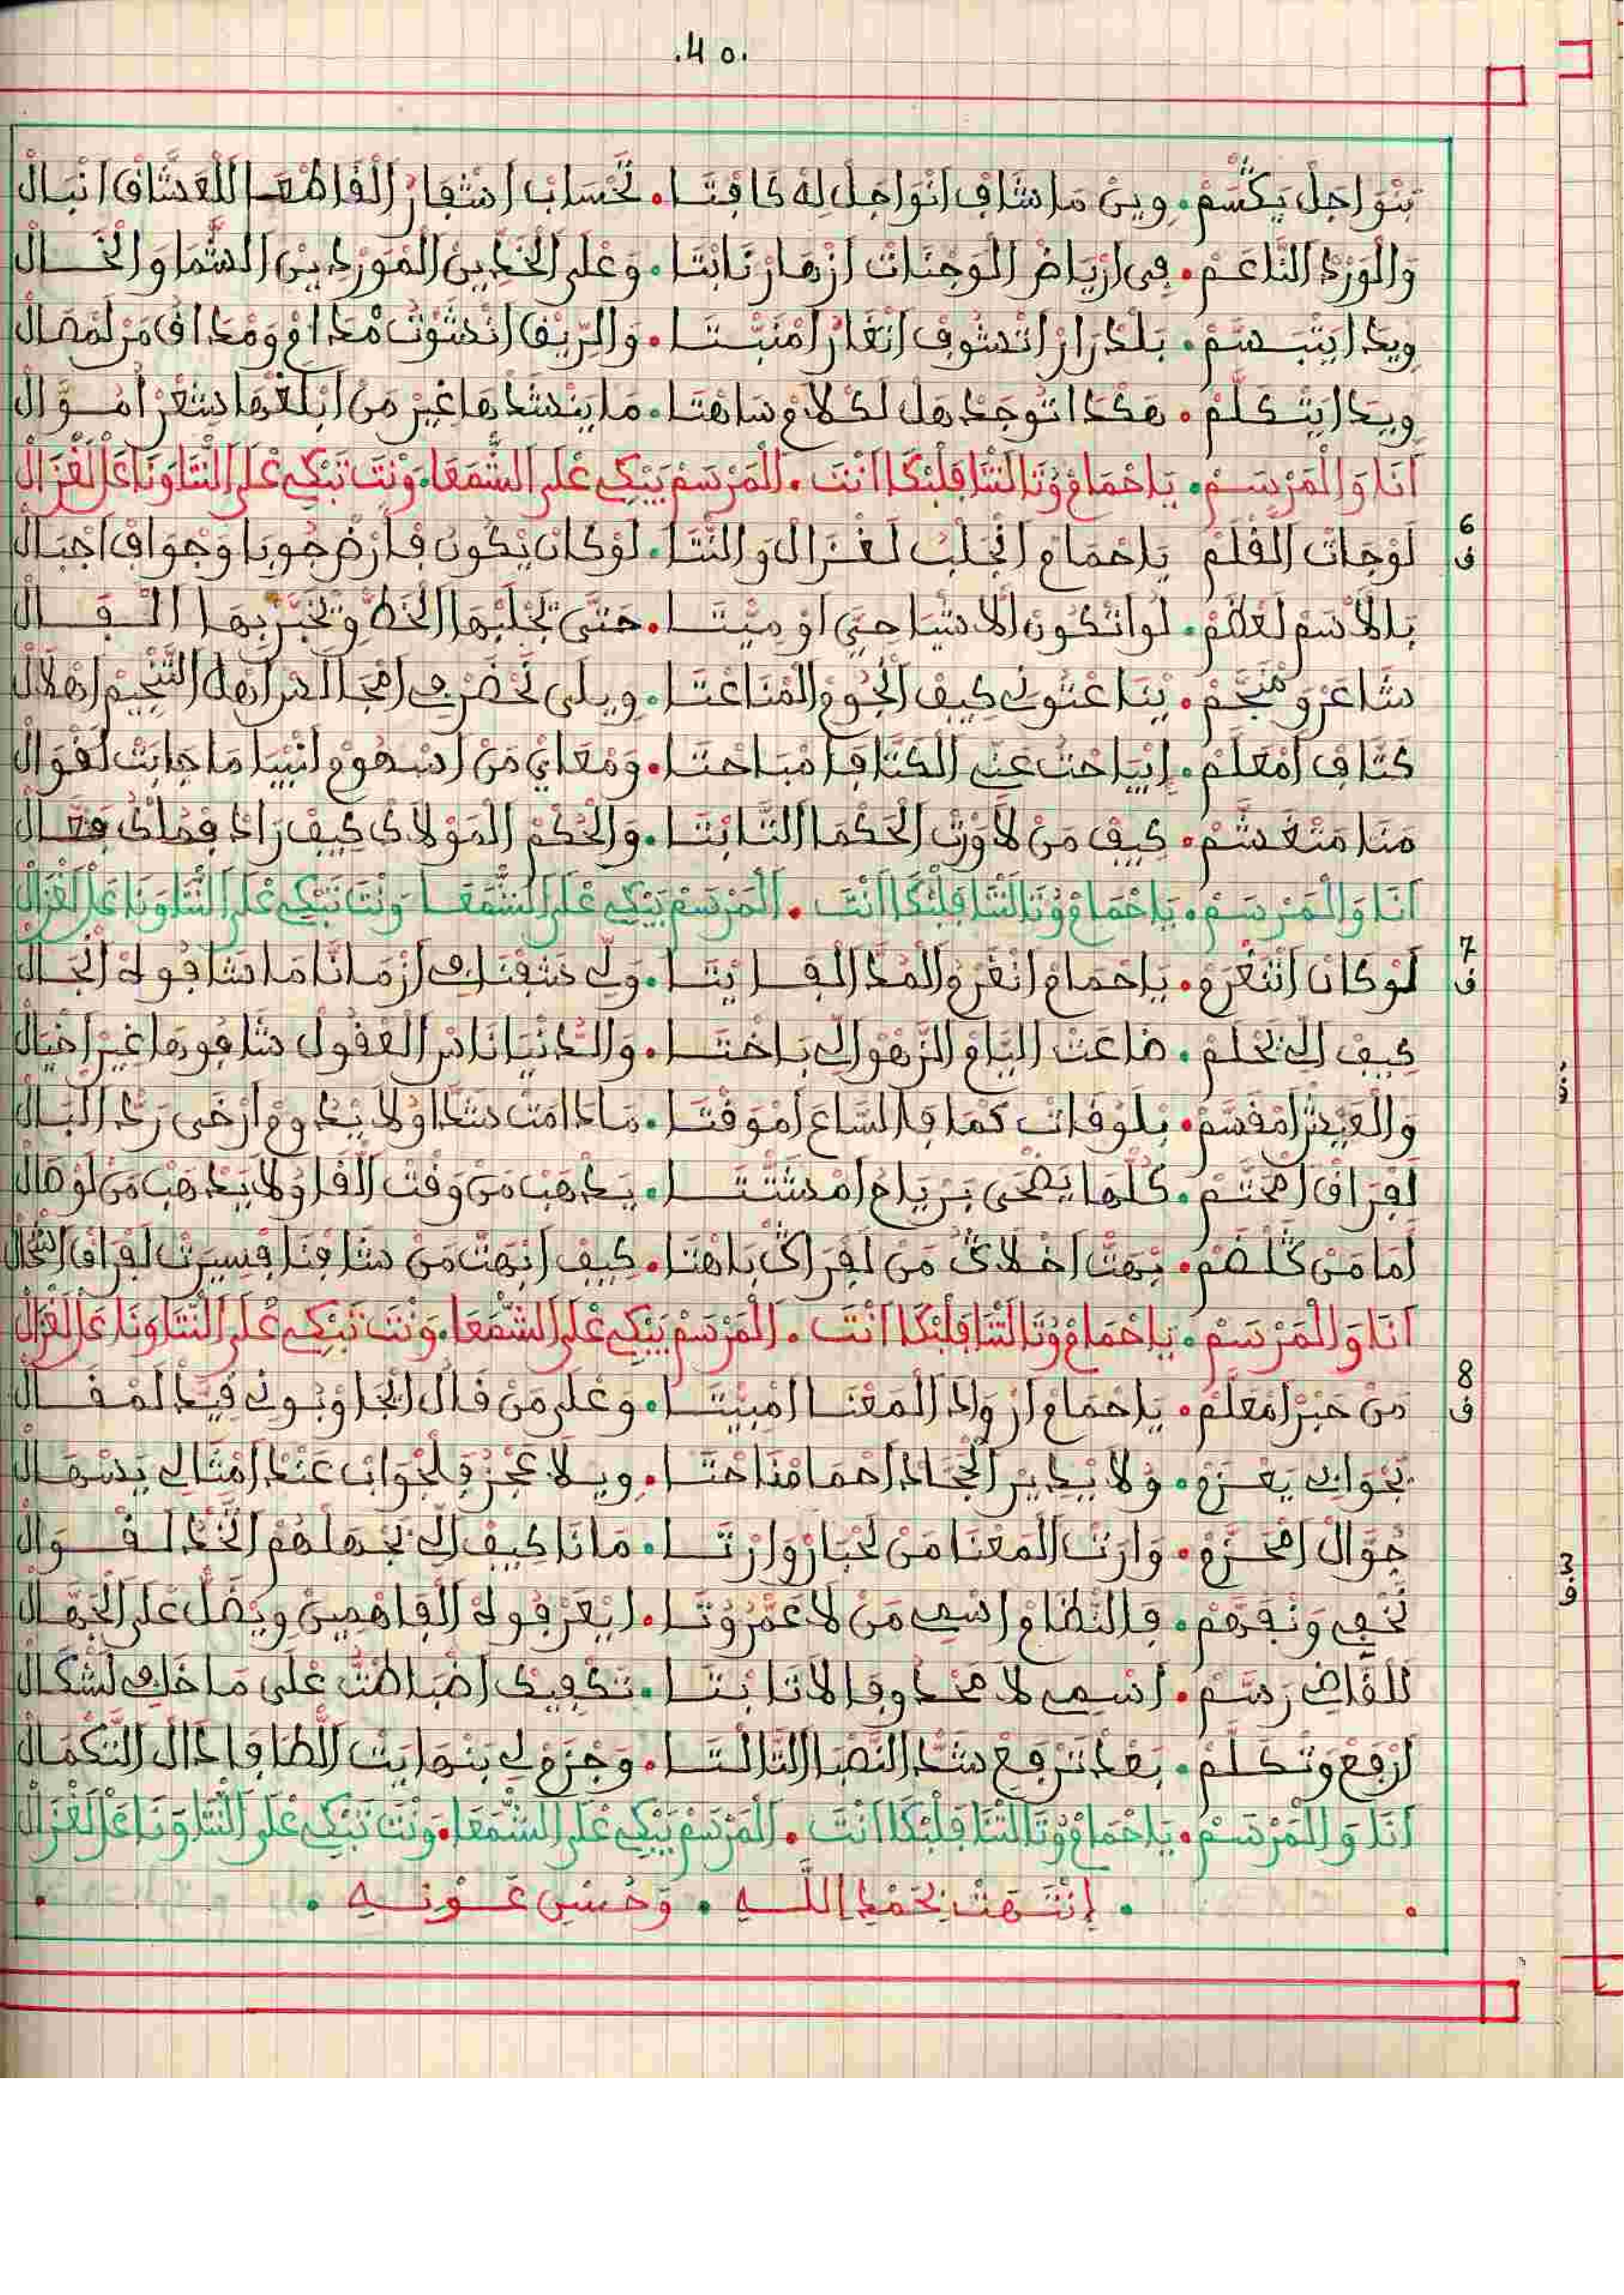 .40.
بنواجل يكسم . وين ماشاف انواجل له كافتا . تحساب اشفار القاطعا للعشاق انبال
والورد الناعم . في ارياض الوجنات ازهار نابتا . وعلى الخدين المورد بين الشما والخال
ويدا يتبسم . بلدرار اتشوف اتغار امنبتا . والريق
ويدا يتكلم . هكدا توجد هل لكلام ساهتا . ما ينشدها غير من ابلغها شعر اموال
انا والمرسم . ياحمام وتا لنتا قلبك انت . المرسم يبكي على الشمعا . ونت تبكي على النتا ونا عل لغزال
6
ف
لوجات القلم ياحمام انجلب لغزال والنتا . لوكان يكون فارض جوبا وجواف اجبال
بالاسم لعظم . لواتكون الاشيا حيي او ميتا . حتى نجلبها الخط وتخبر بها الفال
شاعر ومنجم . يناعتوني كيف الجوم المناعتا . ويلى نحضر في امجال اهل التنجيم اهلال
كتاف امعلم . ايباحت عن الكتافا مباحتا . ومعاي من اسهوم انبيا ما جابت لقوال
منا متغشم . كيف من لاورت الحكما التابتا . والحكم المولاي كيف راد فملك فعال
انا والمرسم . ياحمام وتا لنتا قلبك انت . المرسم يبكي على الشمعا ونت تبكي على النتا ونا عل لغزال
7
ف
لوكان اتنغرم . ياحمام انغرم المدا الفايتا . ولي شفنا في ازمانا ما شافوله انجال
كيف الي يحلم . ضاعت اليام الزهو الي باختا . والدنيا ناس العقول شافوها غير اخيال
والعيش امقسم . بلوقات كما فالساع اموقتا . مادامت شدا ولا يدوم ارخى رد البال
لفراق امحتم . كلها يضحى برياح امشتتا . يدهب من وقت القا ولا يدهب من لوهال
اما من كلضم . بهت اخلاك من لفراك باهتا . كيف ابهت من شافنا فسيرت لفراق انجال
انا والمرسم . ياحمام وتا لنتا قلبك انت . المرسم يبكي على الشمعا . ونت تبكي على النتا ونا عل لغزال
8
ف
من حبر امعلم . ياحمام ارواد المعنا امبيتا . وعلى من قال ايجاوبوني فيد لمقال
بجوابي يعزم . ولا يدير الجاد احما مناحتا . ويلا عجز فلجواب عند امتالي يسهال
جوال امحزم . وارت المعنا من لحبار وارتا . مانا كيف الي يجهلهم الخد لقوال
نخفي ونفهم . فالنظام اسمي من لا عمروتا . ايعرفوله الفاهمين ويضل على الجهال
للقاضي رسم . اسمي لا محدوفا لا تابتا . تكفيك اضباطت على ما خافي لشكال
ارفع وتكلم . بعد ترفع شد النصبا التالتا . وجزم لي بنهايت الطافا دال التكمال
انا والمرسم . ياحمام وتا لنتا قلبك انت . المرسم يبكي على الشمعا . ونت تبكي على النتا ونا عل لغزال
. إنتهت بحمد الله . وحسن عونه .
3
ف